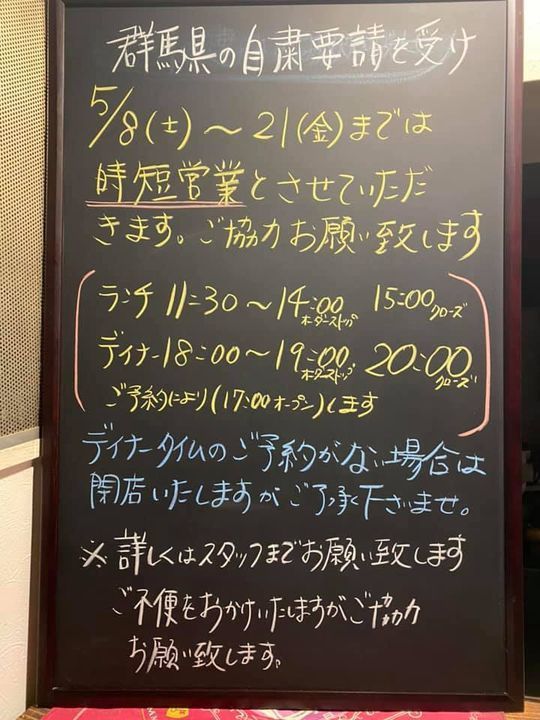 群馬県の自粛要請を受け
5/8(土)～21(金)までは
時短営業とさせていただ
きます。ご協力お願い致します
ランチ 11:30～14:00 オーダーストップ 15:00 クローズ
ディナー18:00～19:00 オーダーストップ 20:00 クローズ
ご予約により(17:00オープン)します
ディナータイムのご予約がない場合は
閉店いたしますがご了承下さいませ。
※詳しくはスタッフまでお願い致します
ご不便をおかけいたしますがご協力
お願い致します。